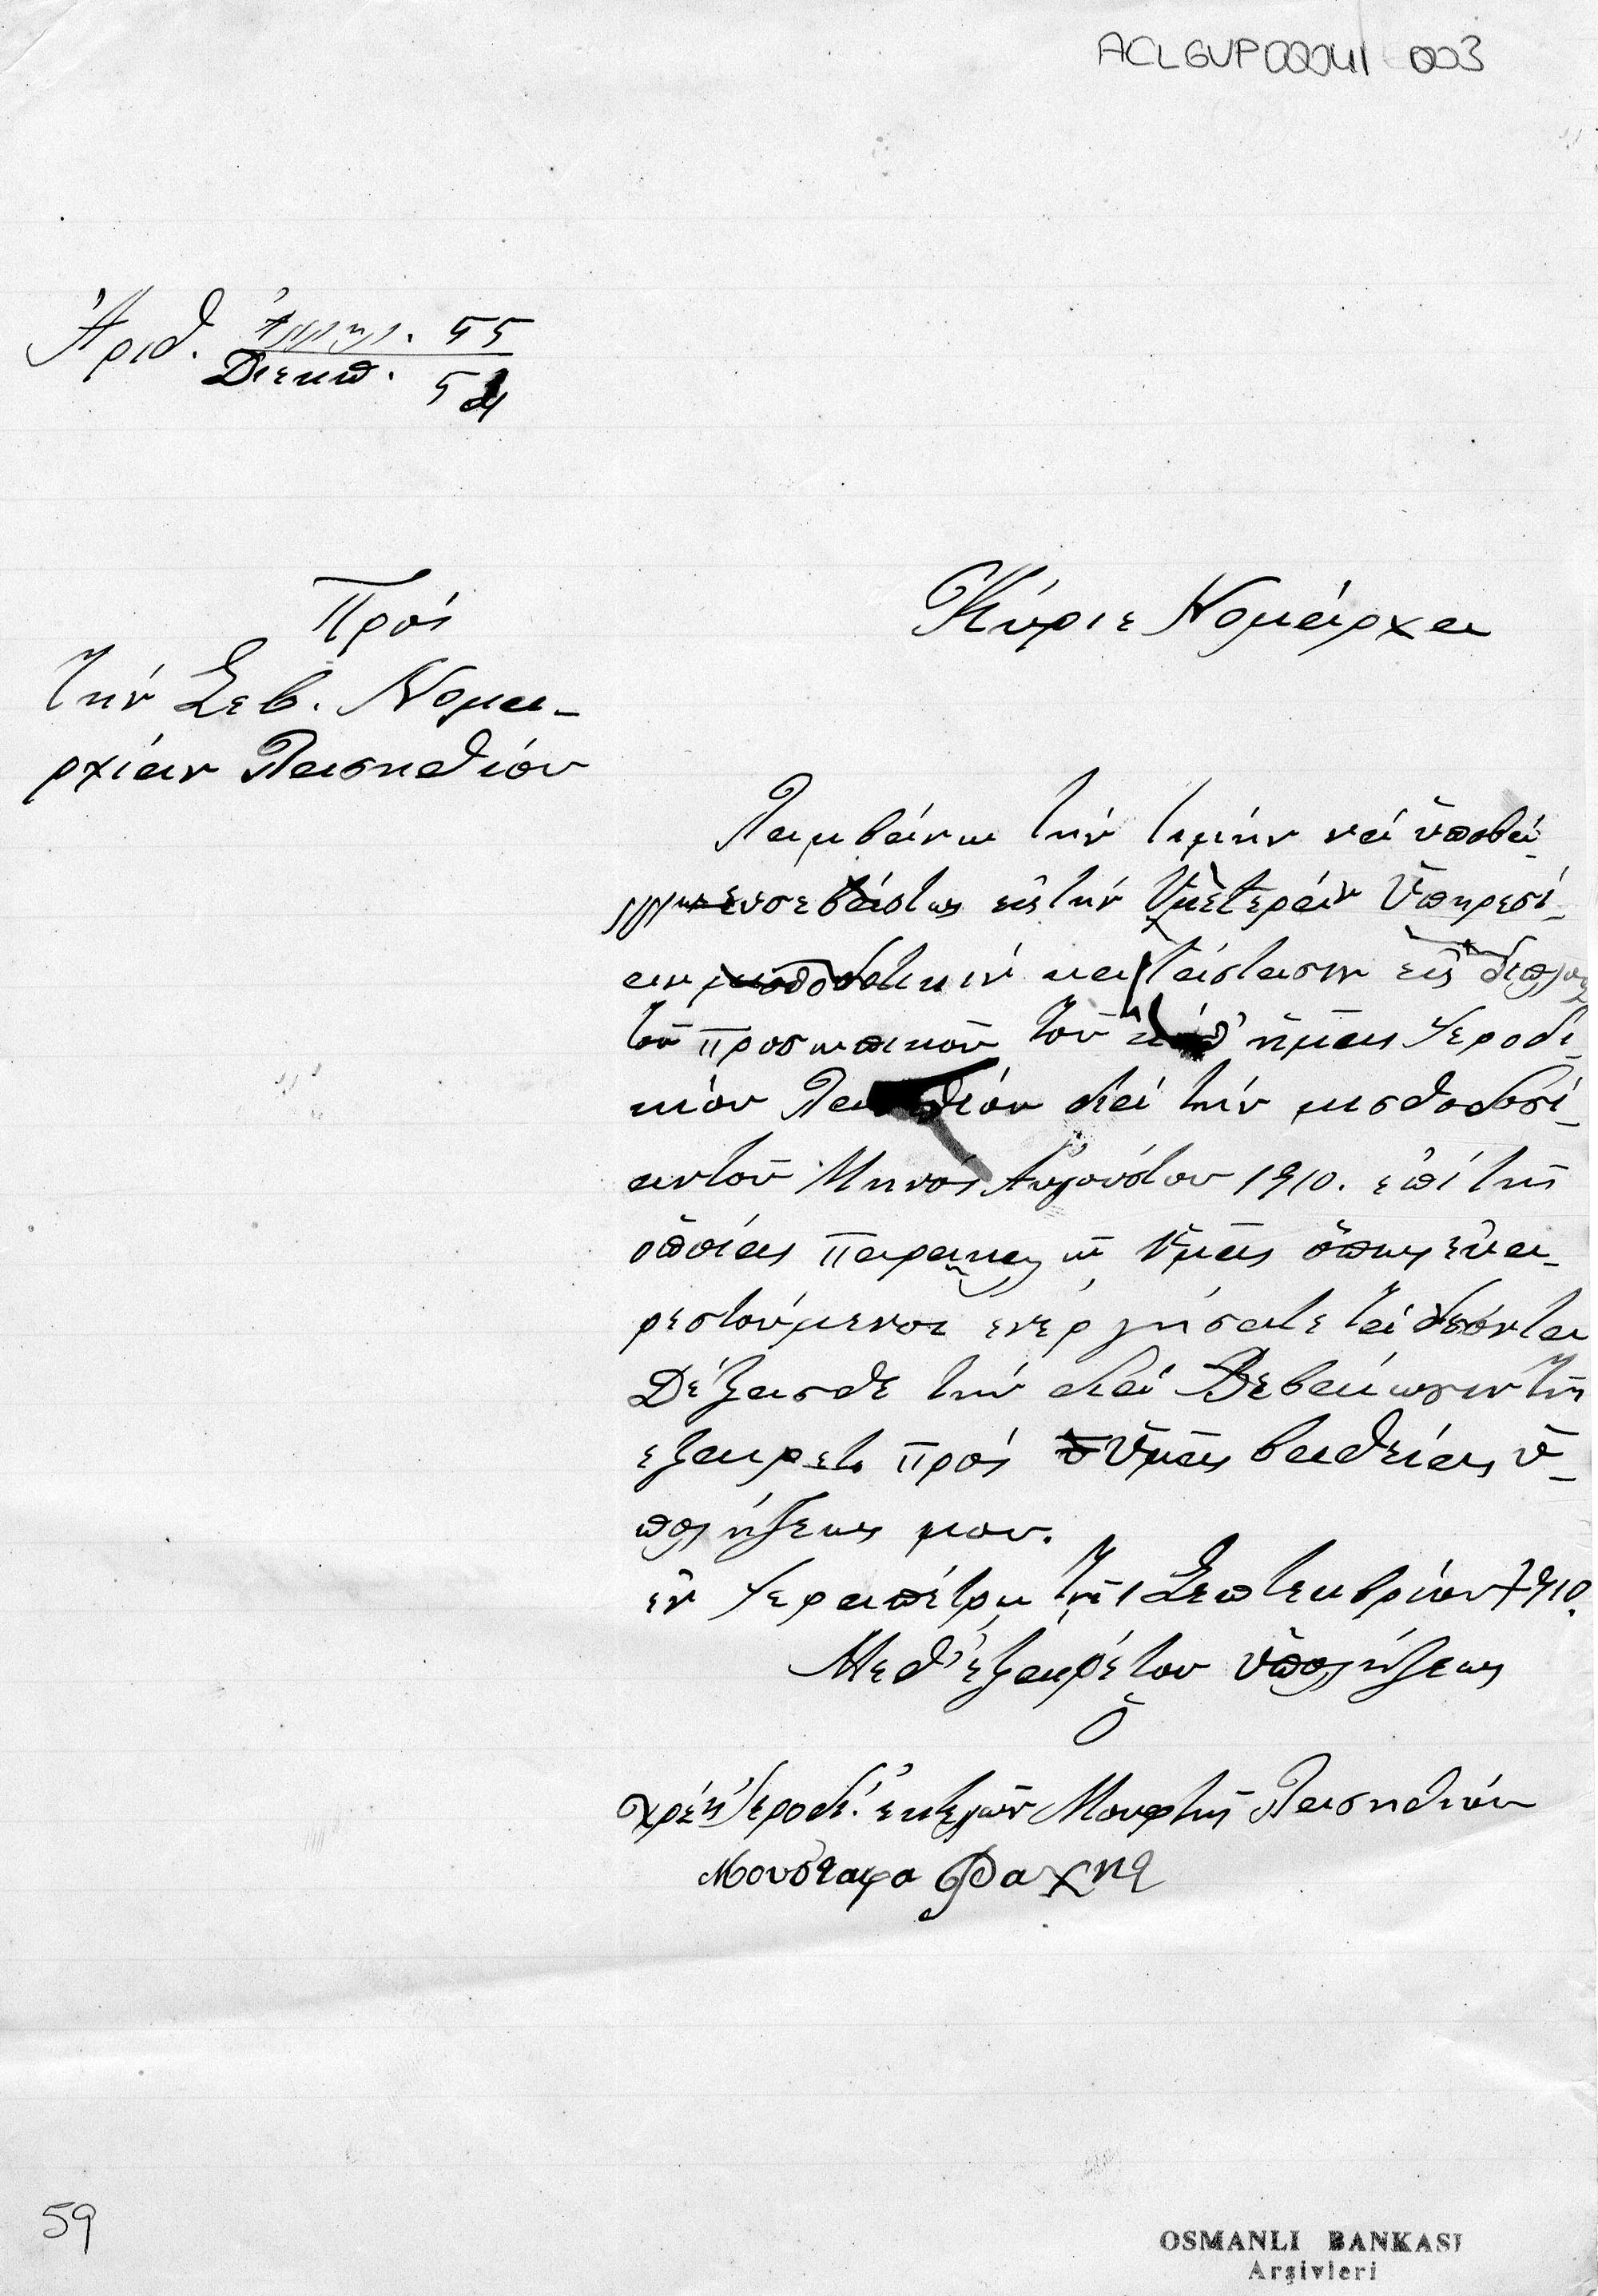 ACLGVP00041 003
Ἀριθ. Ἀλληλ. 55
Διεκπ. 54
Πρός
Τήν Σεβ. Νομα-
ρχίαν Λασηθίου
Κύριε Νομάρχα
Λαμβάνω τήν τιμήν νά ὑποβά-
λλω εὐσεβάστως εἰς τήν Ὑμετέραν Ὑπηρεσί-
αν μισθοδοτικήν κατάστασιν εἰς διπλοῦν
τοῦ προσωπικοῦ τοῦ καθ' ἡμᾶς Ἱεροδι-
κίου Λασηθίου διά τήν μισθοδοσί-
αν τοῦ Μηνός Αὐγούστου 1910. ἐπί τῆς
ὁποίας παρακαλῶ Ὑμᾶς ὅπως εὐα-
ρεστούμενοι ἐνεργήσατε τά δέοντα
Δέξασθε τήν διαβεβαίωσιν τῆς
ἐξαιρέτο πρός Ὑμᾶς βαθείας ὑ-
πολήψεως μου.
ἐν Ἱεραπέτρᾳ τῇ 1 Σεπτεμβρίου 1910.
Μεθ' ἐξαιρέτου ὑπολήψεως
Ὁ
χρέη Ἱεροδί. ἐκτελῶν Μουφτής Λασηθίου
Μουσταφα
59
OSMANLI BANKASI
Arşivleri